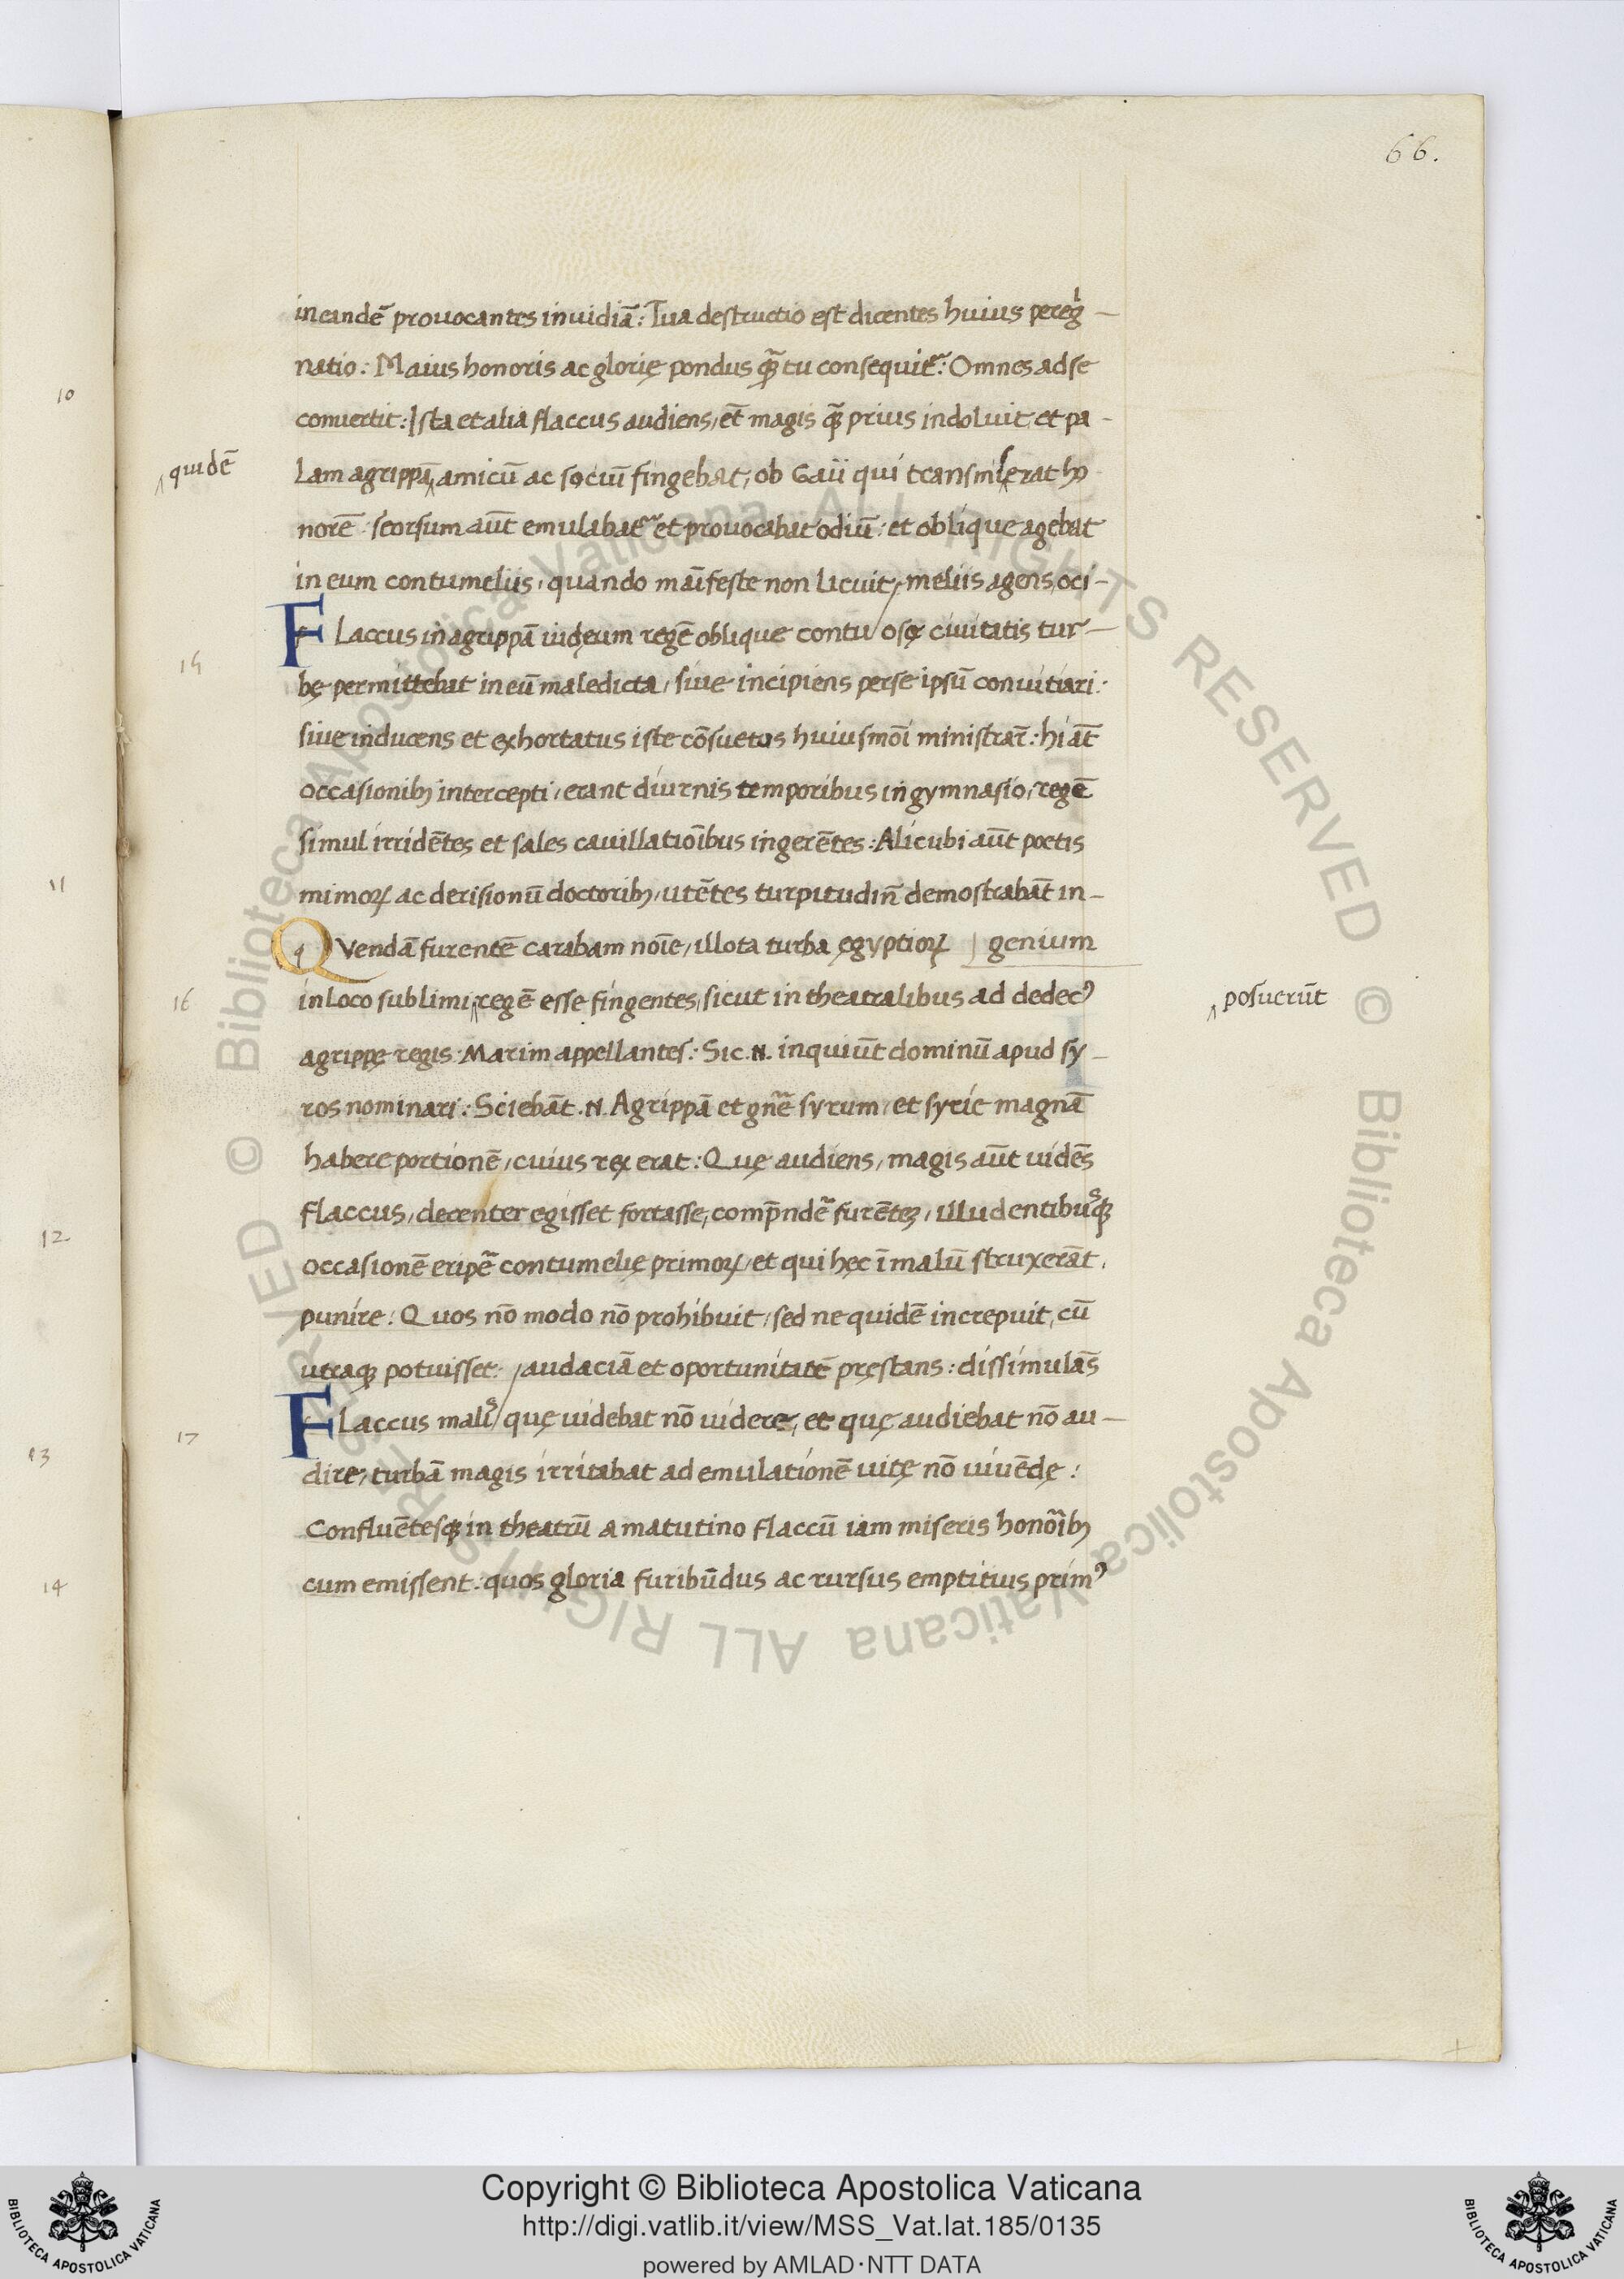 66.
in eandē prouocantes inuidiā: Tua destructio est dicentes huius peregⁱ—
natio: Maius honoris ac glorię pondus q̄ tu consequit᷑: Omnes ad se
conuertit: Ista et alia flaccus audiens, et̄ magis q̄ prius indoluit, et pa-
10
quidē
lam agrippā amicū ac sociū fingebat, ob Gaii qui transmiserat ho
norē: seorsum aūt emulabat᷑ et prouocabat odiū: et oblique agebat
in eum contumeliis, quando māifeste non licuit, meliis agens, oci-
Flaccus in agrippā iudęum regē oblique contu/osę ciuitatis tur-
15
bę permittebat in eū maledicta, siue incipiens per se ipsū conuitiari:
siue inducens et exhortatus iste cōsuetos huiusmōi ministrar̄: hi āt
occasionibꝫ intercepti, erant diurnis temporibus in gymnasio, regē
simul irridētes et sales cauillatiōibus ingerētes: Alicubi aūt poetis
11
mimoꝝ ac derisionū doctoribꝫ, utētes turpitudin̄ demostrabāt in-
Quendā furentē carabam noīe, illota turba ęgyptioꝝ | genium
16
in loco sublimi regē esse fingentes, sicut in theatralibus ad dedecꝰ
posuerūt
agrippę regis: Marim appellantes: Sic .N. inquiūt dominū apud sy-
ros nominari: Sciebāt .N. Agrippā et gn̄e syrum, et syrię magnā
habere portionē, cuius rex erat: Quę audiens, magis aūt uidēs
flaccus, decenter egisset fortasse, comp̄ndē furēteꝫ, illudentibusqꝫ
12
occasionē eripē contumelię primoꝝ, et qui hęc ī malū struxerāt,
punire: Quos nō modo nō prohibuit, sed ne quidē increpuit, cū
utraqꝫ potuisset: /audaciā et oportunitatē pręstans: dissimulās
Flaccus malis/ quę uidebat nō uidere, et quę audiebat nō au-
17
13
dire, turbā magis irritabat ad emulationē uitę nō uiuēdę:
Confluētesqꝫ in theatrū a matutino flaccū iam miseris honoībꝫ
cum emissent: quos gloria furibūdus ac rursus emptitius primꝰ
14
Copyright © Biblioteca Apostolica Vaticana
http://digi.vatlib.it/view/MSS_Vat.lat.185/0135
powered by AMLAD·NTT DATA
BIBLIOTECA APOSTOLICA VATICANA
BIBLIOTECA APOSTOLICA VATICANA
© Biblioteca Apostolica Vaticana ALL RIGHTS RESERVED © Biblioteca Apostolica Vaticana ALL RIGHTS RESERVED